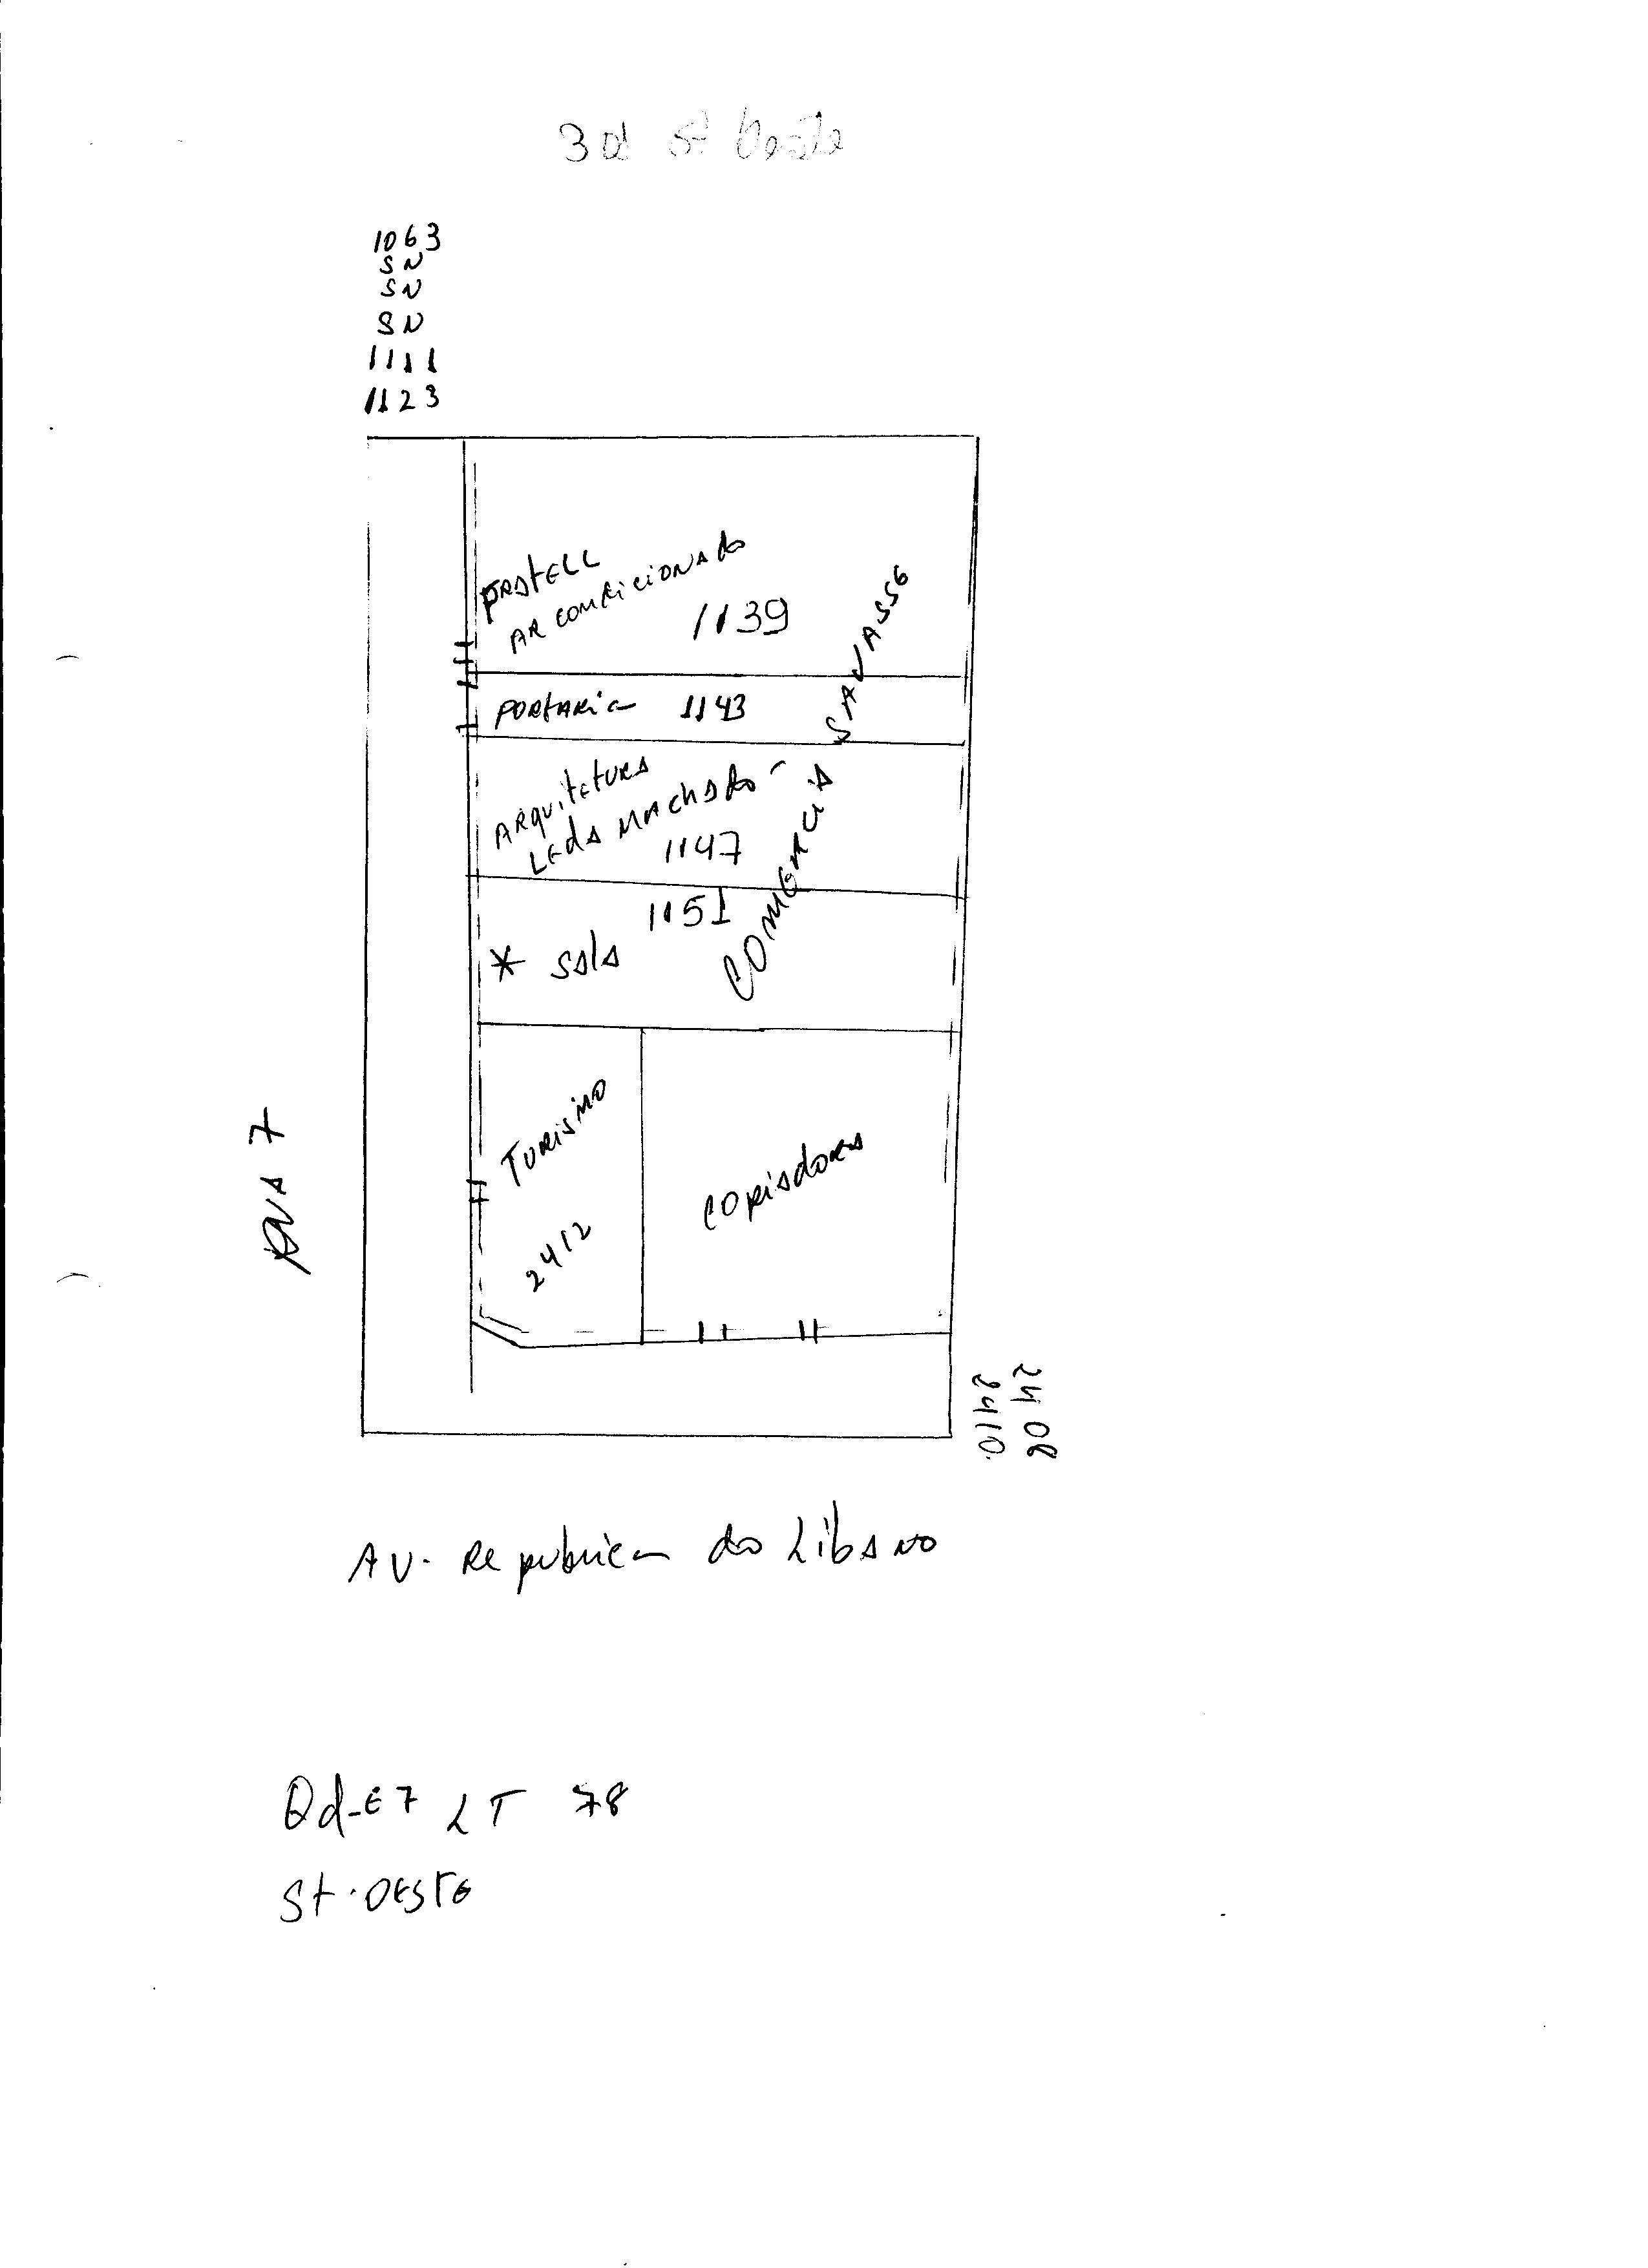 1063
SN
SN
SN
1111
1123
AR CONDICIONADO
1139
PORTARIA 1143
ARQUITETURA
LEDA MACHADO
1147
1151
* SALA
COMERCIA SAVASSE
TURISMO
2412
COPIADORA
RUA 7
2410
2408
AV. REPUBLICA DO LIBANO
Qd-E7 LT 78
ST. OESTE